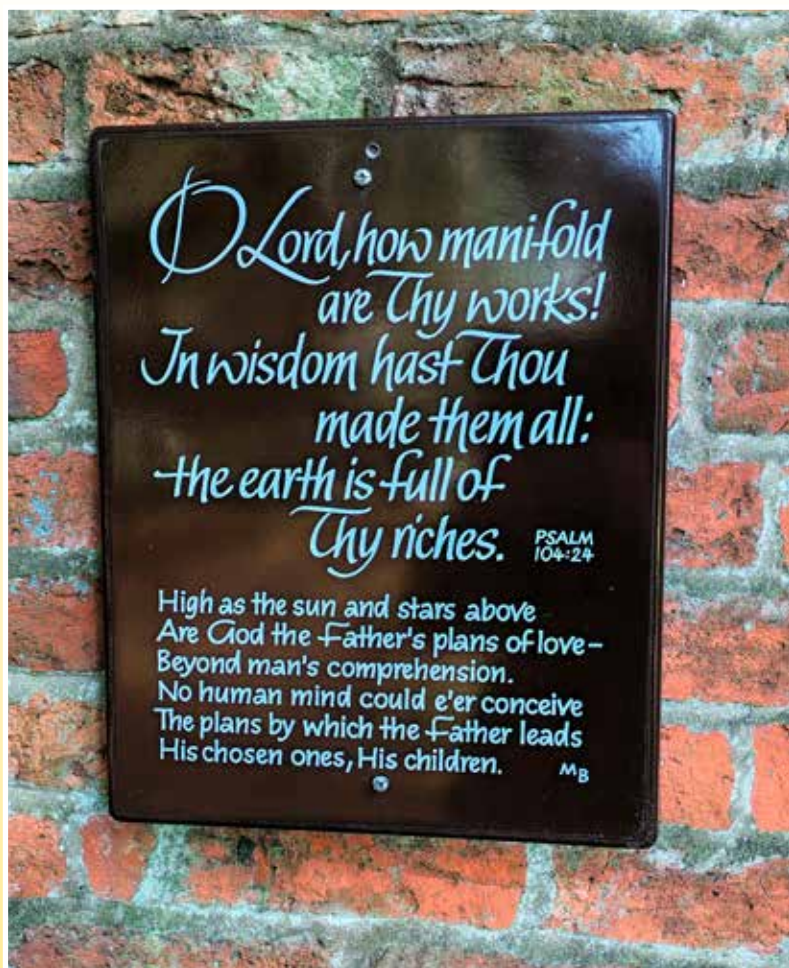 O Lord, how manifold
are Thy works!
In wisdom hast Thou
made them all:
the earth is full of
Thy riches. PSALM
104:24
High as the sun and stars above
Are God the Father's plans of love–
Beyond man's comprehension.
No human mind could e'er conceive
The plans by which the Father leads
His chosen ones, His children. MB